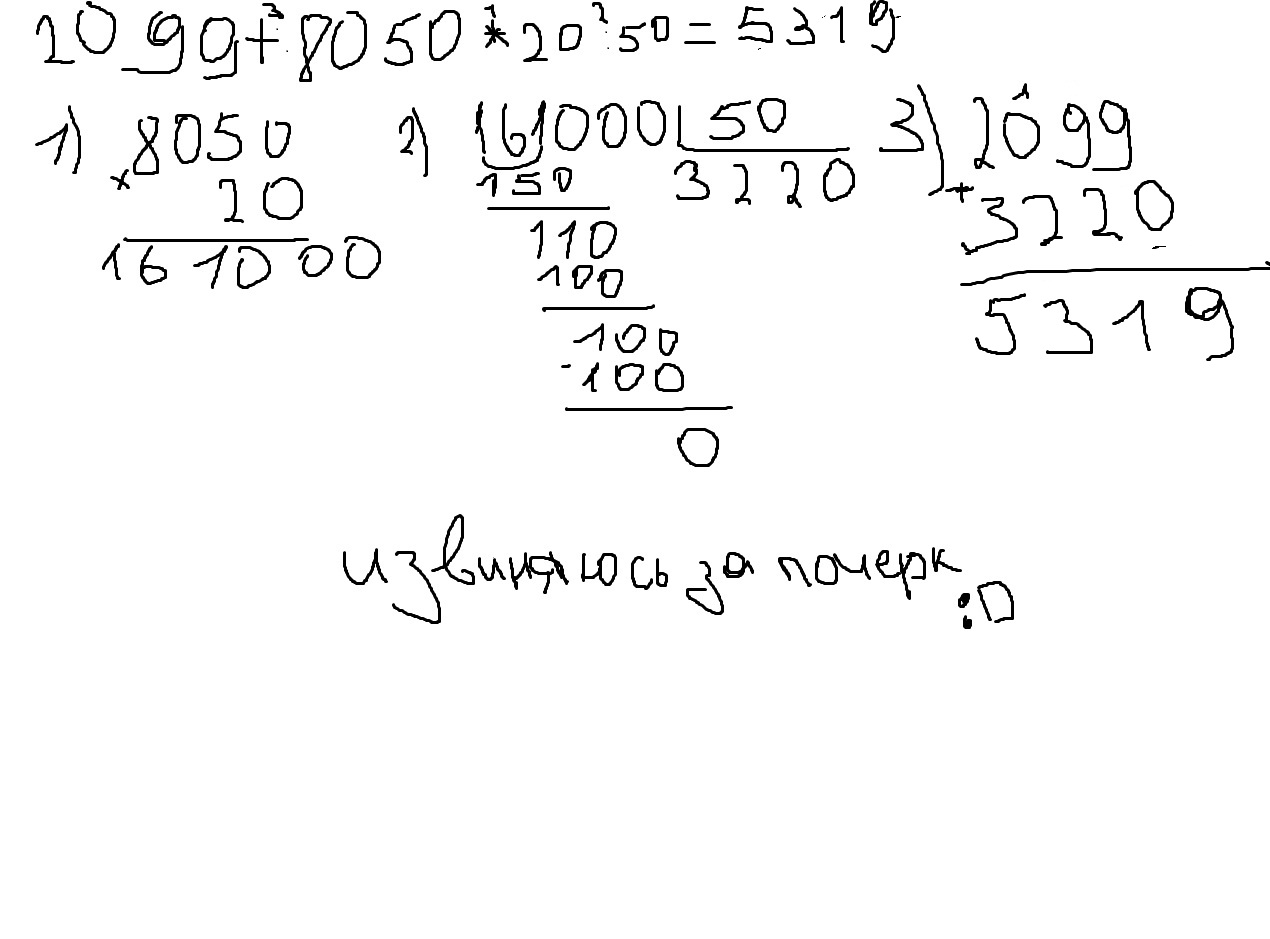 2099+8050*20:50=5319
3 1 2
1) 8050 2) 161000 50 3) 2099
1
× 20 150 3220 + 3220
161000 110 5319
100
100
- 100
0
извиняюсь за почерк :D